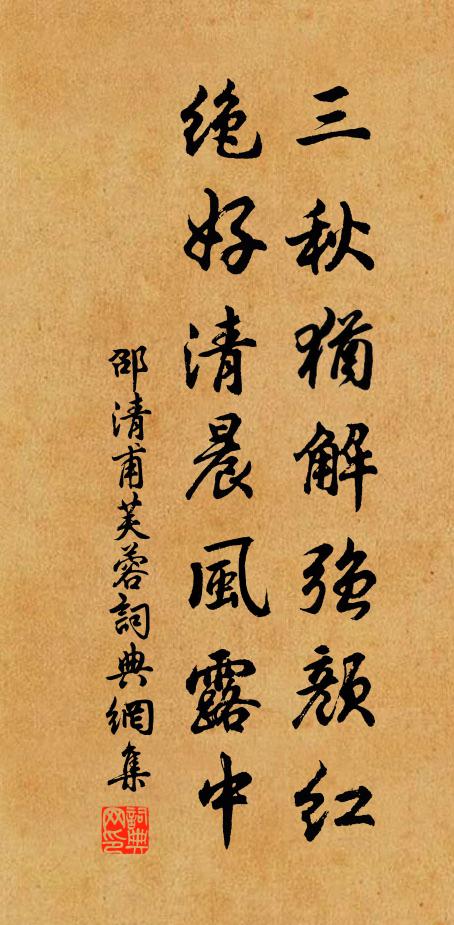 三秋猶解強顏紅
絶好清晨風露中
邵清甫芙蓉詞典網集
詞典網印